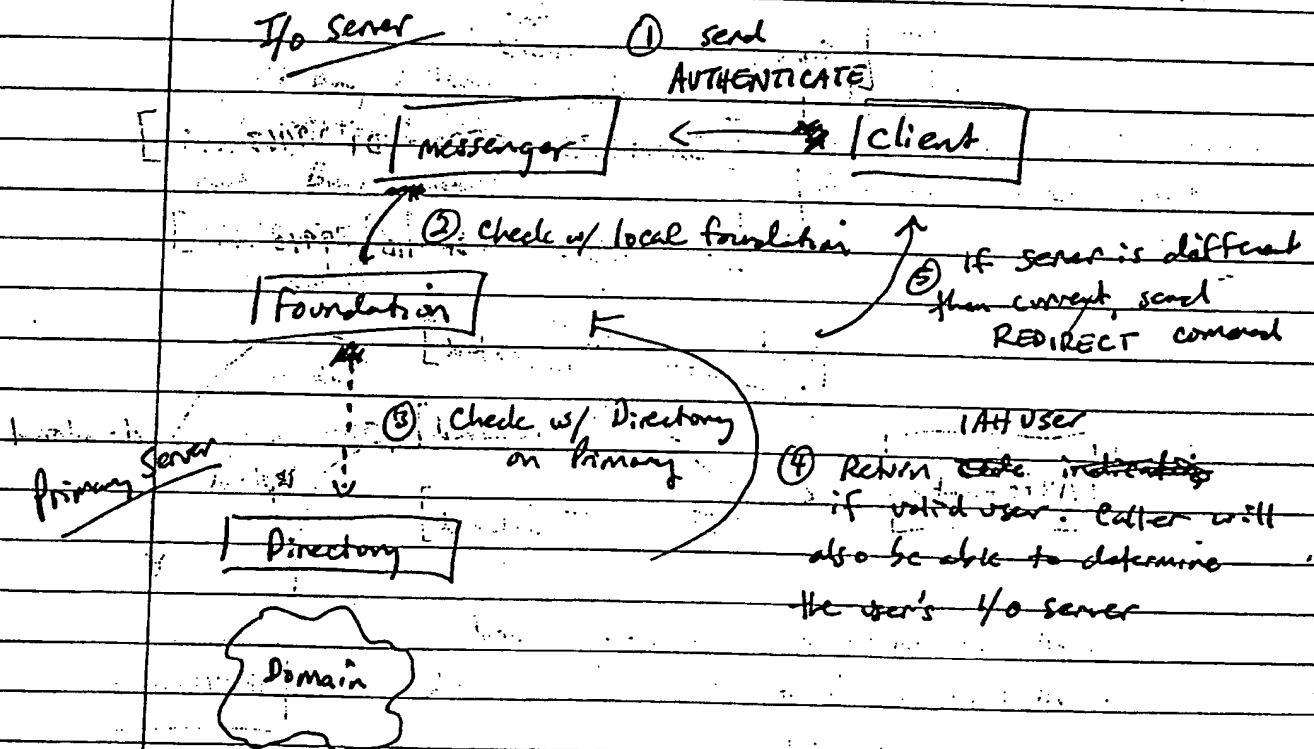 I/o Server
① send
AUTHENTICATE
messenger
client
② check w/ local foundation
Foundation
⑤ If server is different
then current, send
REDIRECT command
③ Check w/ Directory
on Primary
Primary Server
IAH User
④ Return
if valid user. Caller will
also be able to determine
the user's I/o server
Directory
Domain